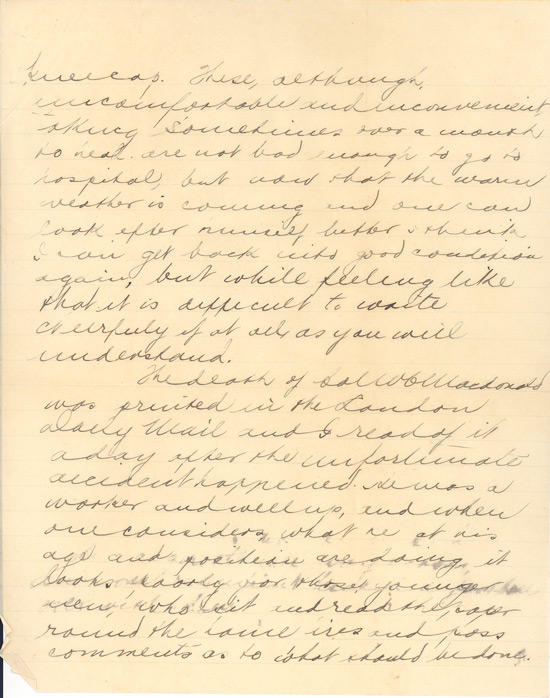 Kneecap. These, although,
uncomfortable and inconvenient
taking sometimes over a month
to heal are not bad enough to go to
hospital, but now that the warm
weather is coming and one can
look after himself, better I think
I can get back into good condition
again, but while feeling like
that it is difficult to write
cheerfuly if at all, as you will
understand.
The death of Macdonald
was printed in the London
Daily Mail and I read of it
a day after the unfortunate
accident happened. He was a
worker and well up, and when
one considers what he at his
age and position are doing it
looks poorly for those younger
men, who sit and read the paper
round the fires and pass
comments as to what should be done.